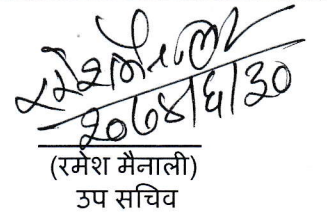 रमेश मैनाली
२०७४।६।३०
(रमेश मैनाली)
उप सचिव